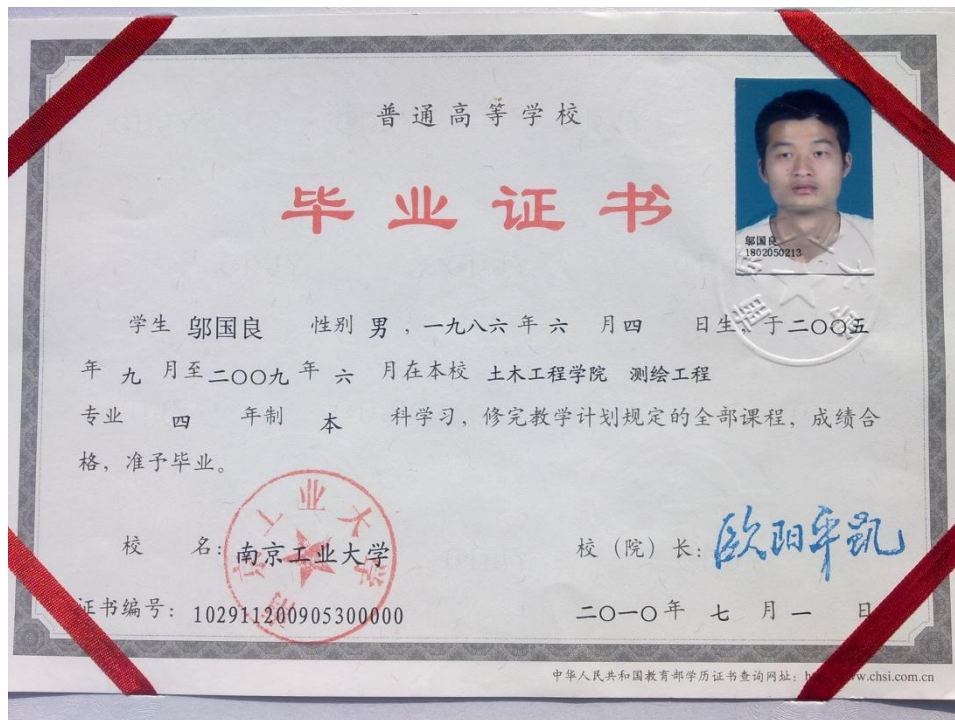 普通高等学校
毕业证书
邬国良
1802050213
学生 邬国良 性别 男 ,一九八六年 六 月四 日生,于二〇〇五
年 九 月至二〇〇九年 六 月在本校 土木工程学院 测绘工程
专业 四 年制 本 科学习,修完教学计划规定的全部课程,成绩合
格,准予毕业。
南京工业大学
校 名:南京工业大学 校(院)长:欧阳平凯
证书编号:102911200905300000 二〇一〇年 七 月 一 日
中华人民共和国教育部学历证书查询网址: www.chsi.com.cn